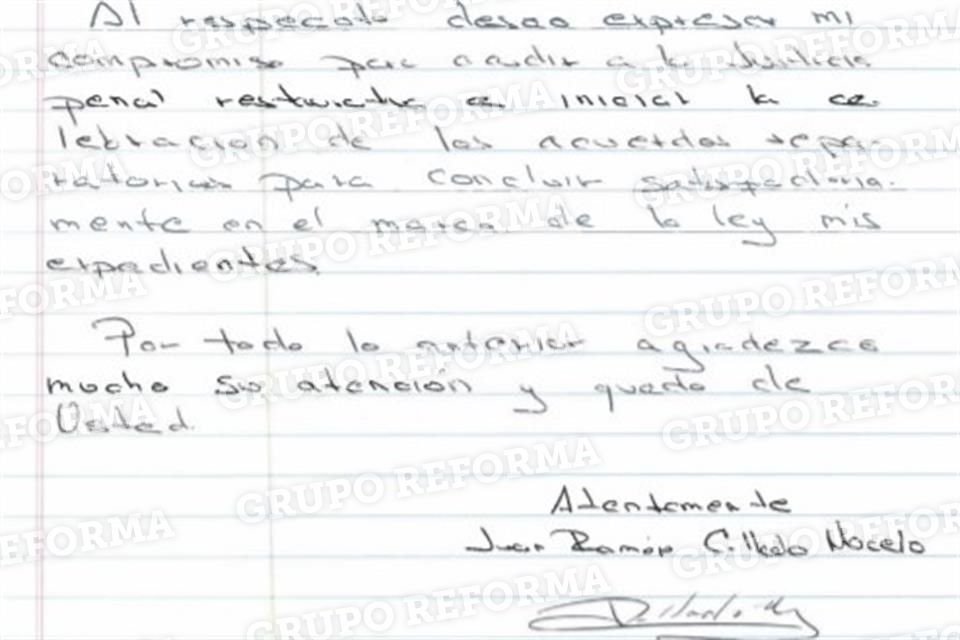 Al respecato deseo expresar mi
compromiso para acudir a la Justicia
penal resturativa e iniciar la ce
lebracion de los acuerdos repa-
ratorios para concluir satisfactoria-
mente en el marco de la ley mis
expedientes.
Por todo lo anterior agradezco
mucho su atención y quedo de
Usted.
Atentamente
Juan Ramón Collado Mocelo
GRUPO REFORMA